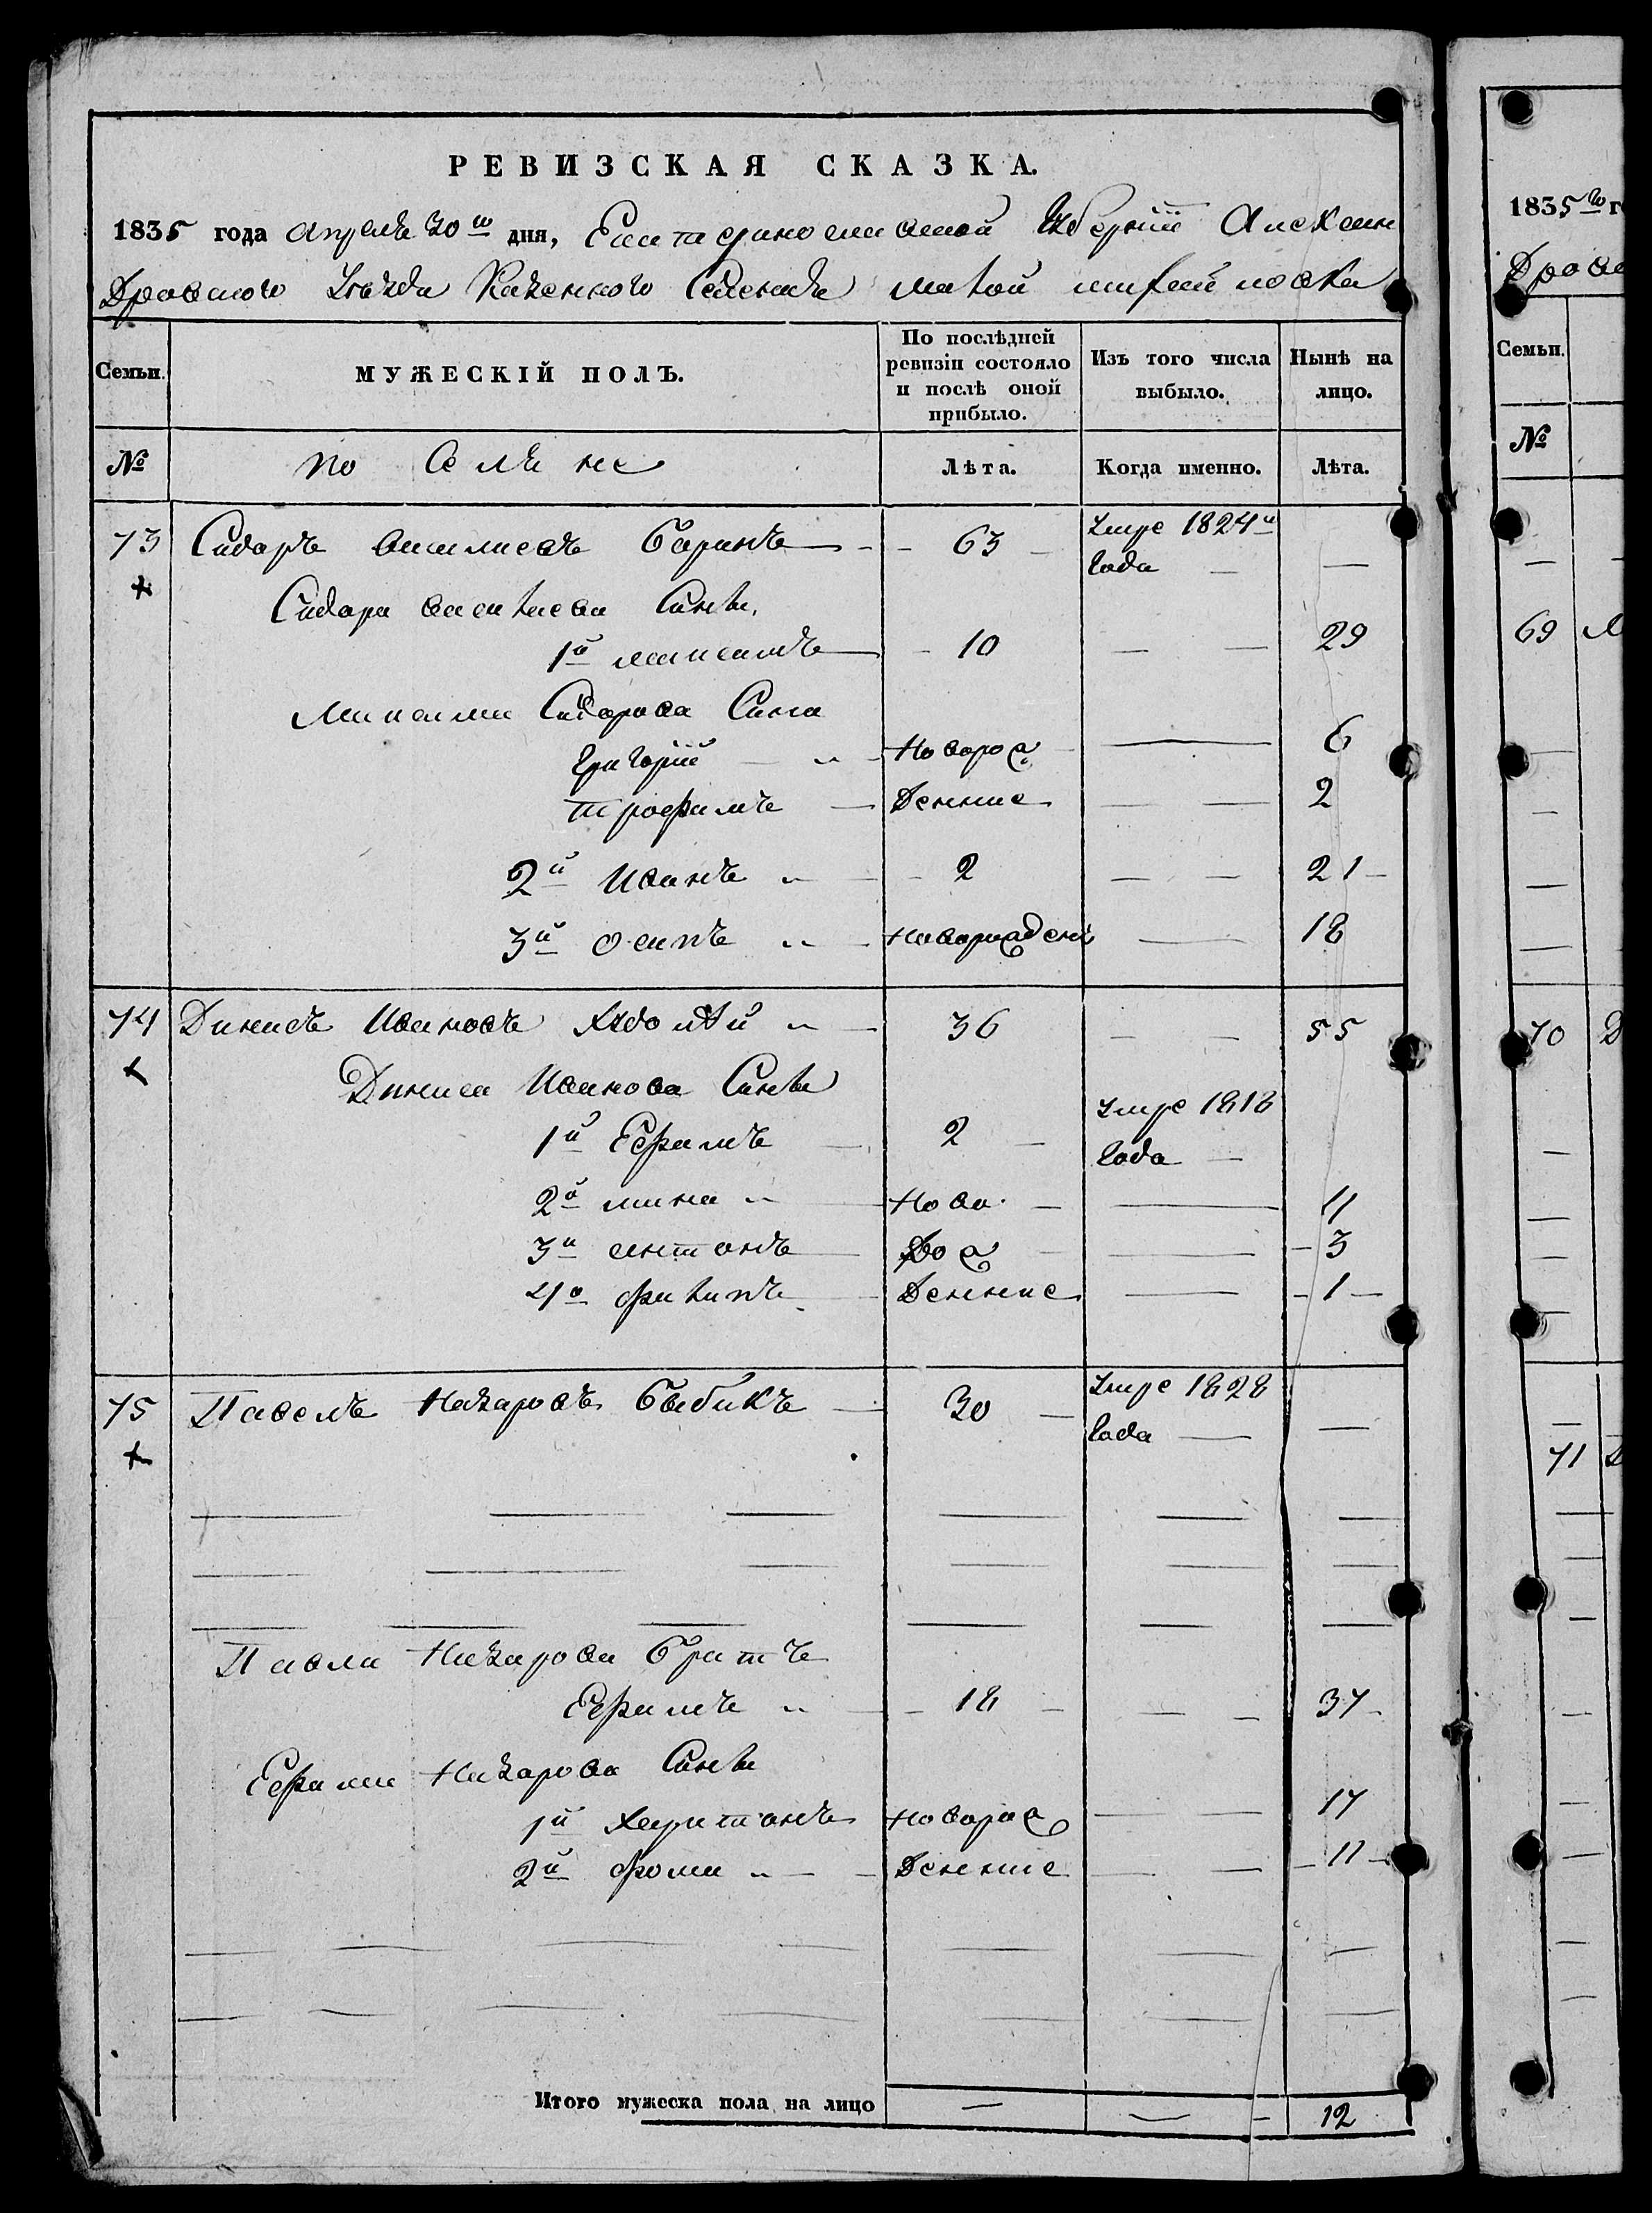 РЕВИЗСКАЯ СКАЗКА.
1835 года апреля 30го дня, Екатеринославской Губернии Алексан
Дровского Уезда Казенного Селения малой михайловки
Семьи.
МУЖЕСКІЙ ПОЛЪ.
По послѣдней ревизіи состояло и послѣ оной прибыло.
Изъ того числа выбыло.
Нынѣ на лицо.
№
Лѣта.
Когда именно.
Лѣта.
73 Сидоръ василиевъ 63 умре 1824го
года —
Сидора василиева Сины
1й максимъ 10 — — 29
максима Сидорова Сины
Григорій Новорож — 6
трофимъ Денние — — 2
2й Иванъ 2 — — 21
3й осипъ новорожден — 18
74 Динисъ Ивановъ 36 — — 55
Диниса Иванова Сины
1й Ефимъ 2 — умре 1818
года —
2й мина Ново — 11
3й антонъ Рож — 3
4й филипъ Денние — 1
75 Павелъ Назаровъ Бибикъ 30 — умре 1828
года —
Павла Назарова братъ
Ефимъ 18 — — 37
Ефима Назарова Сины
1й харитонъ новорож — — 17
2й фома Денние — — 11
Итого мужеска пола на лицо — — 12
1835го г
Дровс
Семьи.
№
69 М
70 Д
71